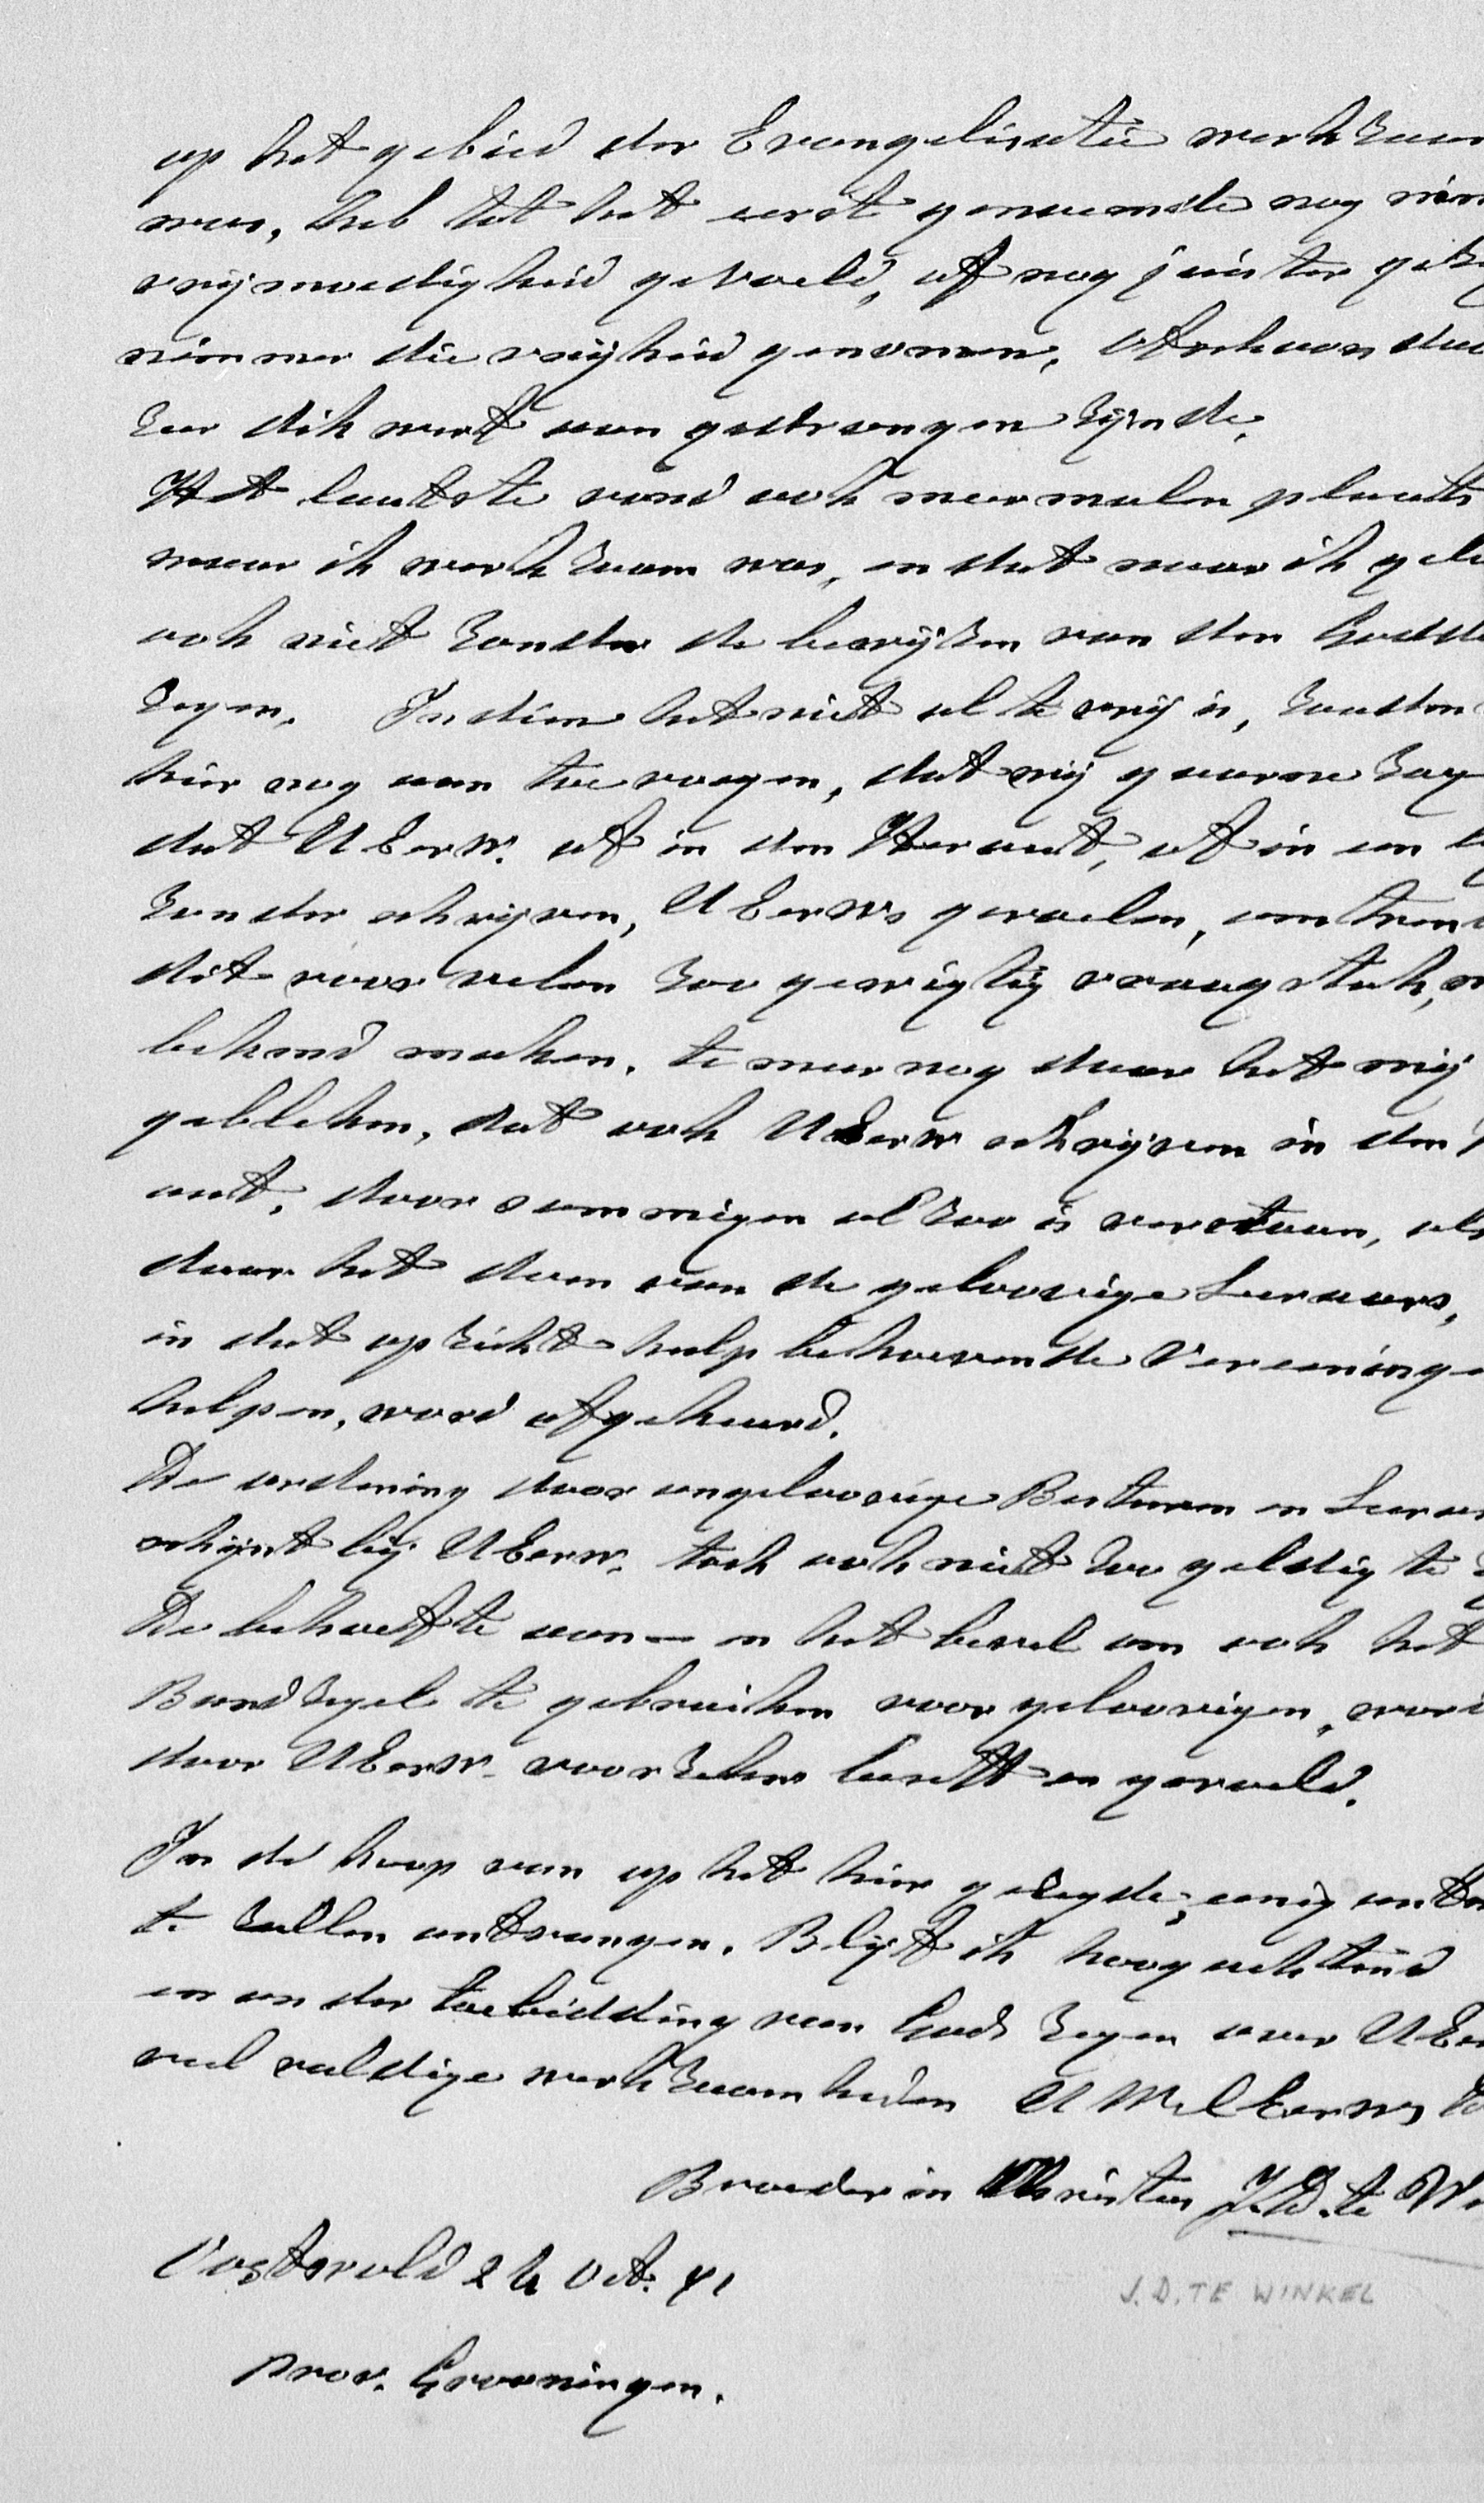 op het gebied der Evangelisatie werkzaam
was, heb tot het eerst genoemde nog nim
vrijmoedigheid gevoeld, of nog juister gez
nimmer die vrijheid genomen, ofschoon daa
zeer dikwerf aan gedrongen zijnde.
Het laatste vond ook meermalen plaats
waar ik werkzaam was, en dat naar ik gelo
ook niet zonder de bewijzen van den Godde
zegen. Indien het niet al te vrij is, zouden
hier nog aan toe voegen, dat wij gaarne zag
dat UEerw. of in den Heraut, of in een b
zonder schrijven, UEerws gevoelen, omtrent
dit voor velen zoo gewigtig vraagstuk,
bekend maken, te meer nog daar het mij
gebleken, dat ook UEerw schrijven in den
aut, door sommigen al zoo is verstaan, als
daar het doen van de geloovige Leeraars,
in dat opzicht hulp behoevende Vereeninge
helpen, word afgekeurd.
De ordening door ongeloovige Besturen en Leeraa
schijnt bij UEerw. toch ook niet zoo geldig te z
De behoefte aan – en het bevel om ook het
Bondzegel te gebruiken voor geloovigen, word
door UEerw. voorzeker beseft en gevoeld.
In de hoop van op het hier gezegde, eenig antw
te zullen ontvangen. Blijf ik hoogachtend
en onder toebidding van Gods zegen over UEer
veelvuldige werkzaamheden UWelEerws to
Broeder in Christus J.D. te W
Oostwold 24 Oct. 81
prov. Groningen.
J.D. TE WINKEL